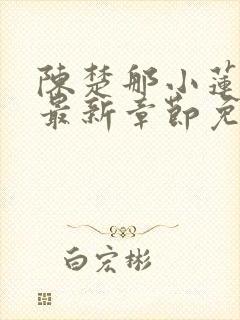 陳楚那小蓮
最新章節免
白宏彬